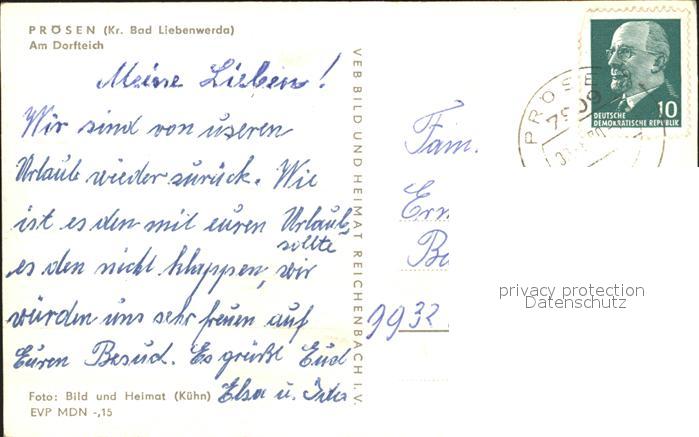 PRÖSEN (Kr. Bad Liebenwerda)
Am Dorfteich
Meine Lieben!
Wir sind von useren
Urlaub wieder zurück. Wie
ist es den mit euren Urlaub,
sollte
es den nicht klappen, wir
würden uns sehr freuen auf
Euren Besuch. Es grüßt Euch
Elsa u.
Foto: Bild und Heimat (Kühn)
EVP MDN -,15
VEB BILD UND HEIMAT REICHENBACH I. V.
PRÖSEN
7909
10
DEUTSCHE
DEMOKRATISCHE REPUBLIK
Fam.
9932
privacy protection
Datenschutz